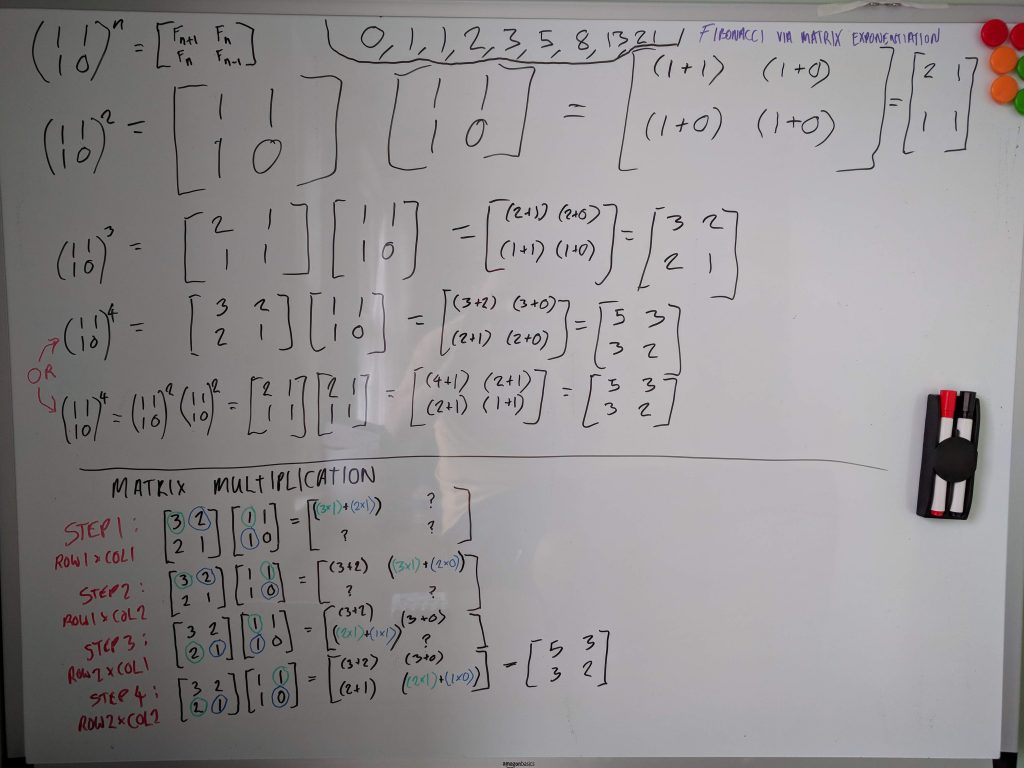 (1 1 1 0)ⁿ = [Fₙ₊₁ Fₙ Fₙ Fₙ₋₁] 0, 1, 1, 2, 3, 5, 8, 13, 21 FIBONACCI VIA MATRIX EXPONENTIATION
(1 1 1 0)² = [1 1 1 0] [1 1 1 0] = [(1+1) (1+0) (1+0) (1+0)] = [2 1 1 1]
(1 1 1 0)³ = [2 1 1 1] [1 1 1 0] = [(2+1) (2+0) (1+1) (1+0)] = [3 2 2 1]
(1 1 1 0)⁴ = [3 2 2 1] [1 1 1 0] = [(3+2) (3+0) (2+1) (2+0)] = [5 3 3 2]
OR
(1 1 1 0)⁴ = (1 1 1 0)² (1 1 1 0)² = [2 1 1 1] [2 1 1 1] = [(4+1) (2+1) (2+1) (1+1)] = [5 3 3 2]
MATRIX MULTIPLICATION
STEP 1: [3 2 2 1] [1 1 1 0] = [(3×1)+(2×1) ? ? ?]
ROW1×COL1
STEP 2: [3 2 2 1] [1 1 1 0] = [(3+2) (3×1)+(2×0) ? ?]
ROW1×COL2
STEP 3: [3 2 2 1] [1 1 1 0] = [(3+2) (3+0) (2×1)+(1×1) ?]
ROW2×COL1
STEP 4: [3 2 2 1] [1 1 1 0] = [(3+2) (3+0) (2+1) (2×1)+(1×0)] = [5 3 3 2]
ROW2×COL2
amazonbasics